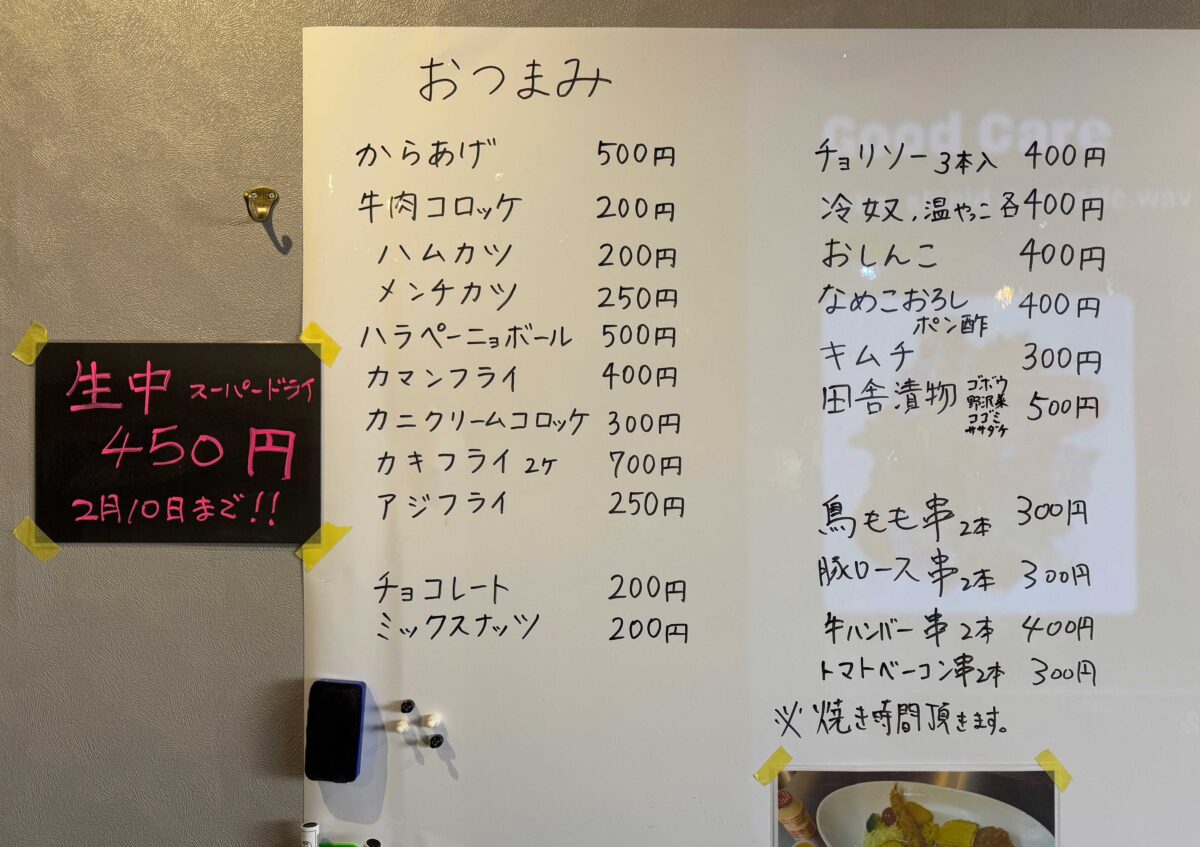 おつまみ
からあげ 500円
牛肉コロッケ 200円
ハムカツ 200円
メンチカツ 250円
ハラペーニョボール 500円
カマンフライ 400円
カニクリームコロッケ 300円
カキフライ 2ケ 700円
アジフライ 250円
チョコレート 200円
ミックスナッツ 200円
チョリソー 3本入 400円
冷奴、温やっこ 各400円
おしんこ 400円
なめこおろし 400円
ポン酢
キムチ 300円
田舎漬物 500円
ゴボウ
野沢菜
コゴミ
ササダケ
鳥もも串 2本 300円
豚ロース串 2本 300円
牛ハンバー串 2本 400円
トマトベーコン串2本 300円
※焼き時間頂きます。
生中 スーパードライ
450円
2月10日まで!!
Good Care